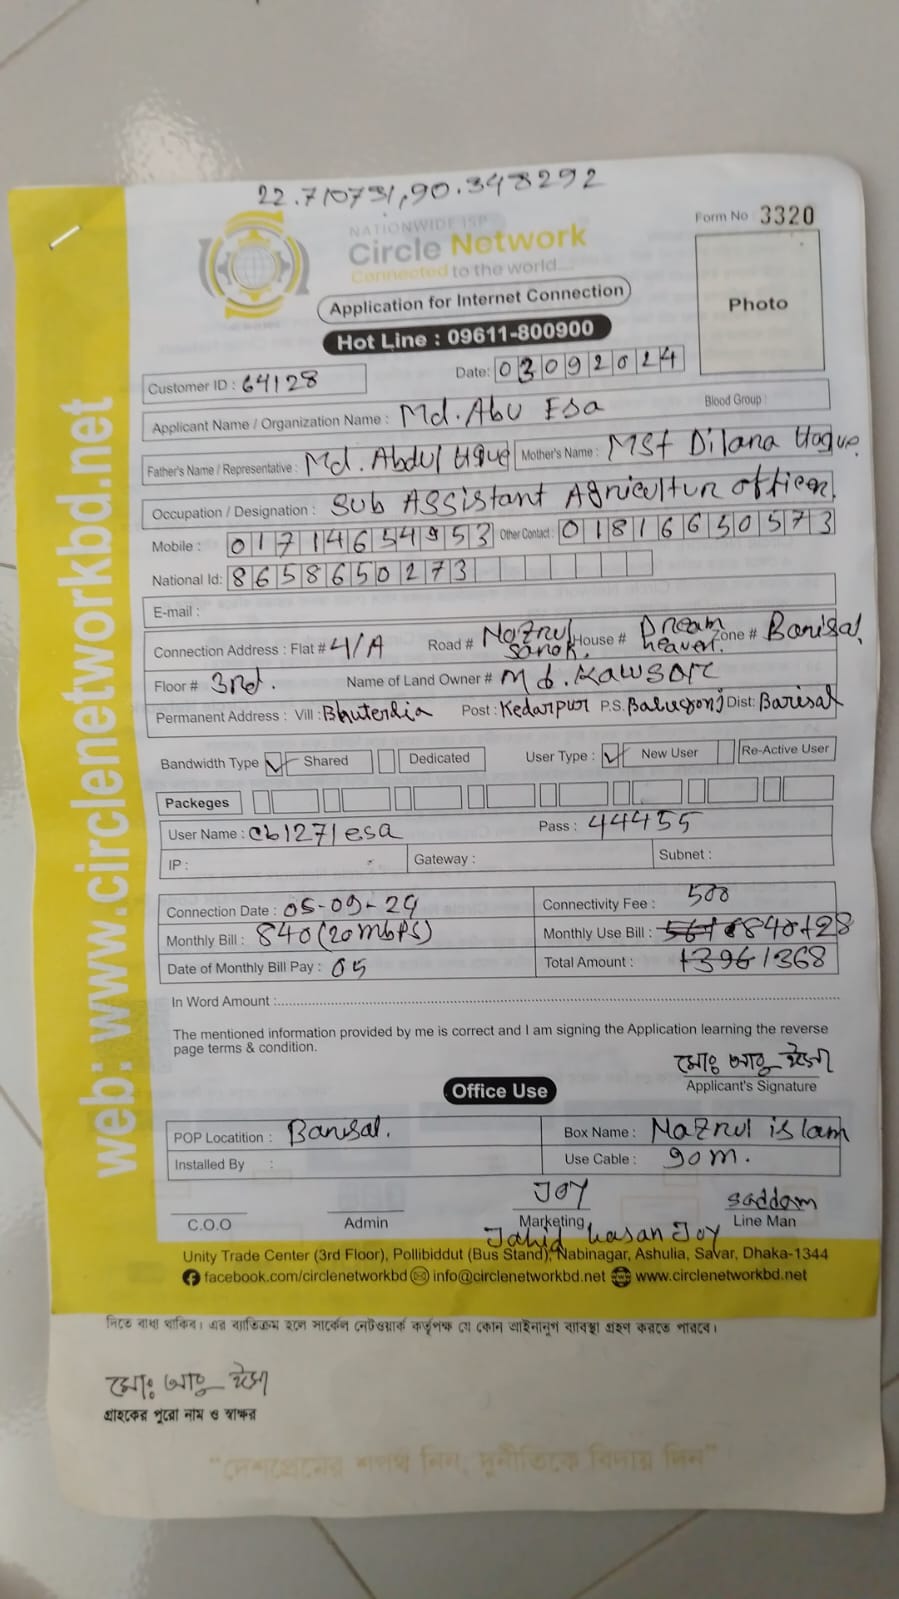 22.710731,90.348292
Form No 3320
NATIONWIDE ISP
Circle Network
Connected to the world...
Photo
Application for Internet Connection
Hot Line : 09611-800900
Customer ID : 64128
Date: 03092024
Applicant Name / Organization Name : Md. Abu Esa
Blood Group :
Father's Name / Representative : Md. Abdul Haque Mother's Name : MSt Dilana Haque.
Occupation / Designation : Sub Assistant Agricultur officer
Mobile : 01714654953 Other Contact : 01816650573
National Id: 8658650273
E-mail :
Connection Address : Flat # 4/A Road # Nazrul Sarok. House # Dream heaven. Zone # Barisal.
Floor # 3rd. Name of Land Owner # Md. Kawsar
Permanent Address : Vill : Bhuterdia Post : Kedarpur P.S. Babugonj Dist: Barisal
Bandwidth Type Shared Dedicated User Type : New User Re-Active User
Packeges
User Name : cb1271esa Pass : 44455
IP : Gateway : Subnet :
Connection Date : 05-09-24 Connectivity Fee : 500
Monthly Bill : 840 (20mbps) Monthly Use Bill : 840+28
Date of Monthly Bill Pay : 05 Total Amount : 1396 1368
In Word Amount :
The mentioned information provided by me is correct and I am signing the Application learning the reverse
page terms & condition.
মোঃ আবু ইসা
Applicant's Signature
Office Use
POP Locatition : Barisal. Box Name : Nazrul islam
Installed By : Use Cable : 90m.
JOY saddam
C.O.O Admin Marketing Line Man
Jahid hasan Joy
Unity Trade Center (3rd Floor), Pollibiddut (Bus Stand), Nabinagar, Ashulia, Savar, Dhaka-1344
facebook.com/circlenetworkbd info@circlenetworkbd.net www.circlenetworkbd.net
web: www.circlenetworkbd.net
নিতে বাধ্য থাকিব। এর ব্যতিক্রম হলে সার্কেল নেটওয়ার্ক কর্তৃপক্ষ যে কোন আইনানুগ ব্যবস্থা গ্রহণ করতে পারবে।
মোঃ আবু ইসা
গ্রাহকের পুরো নাম ও স্বাক্ষর
"দেশপ্রেমের শপথ নিন, দুর্নীতিকে বিদায় দিন"